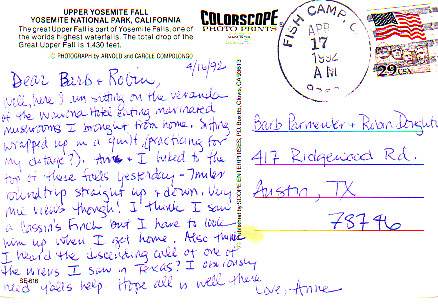 UPPER YOSEMITE FALL
YOSEMITE NATIONAL PARK, CALIFORNIA
The great Upper Fall is part of Yosemite Falls, one of
the worlds highest waterfalls. The total drop of the
Great Upper Fall is 1,430 feet.
© PHOTOGRAPH by ARNOLD and CAROLE COMPOLONGO
COLORSCOPE
PHOTO PRINTS
FISH CAMP, C
APR
17
1992
AM
USA
29
4/16/92
Dear Barb + Robin,
Well, here I am sitting on the verandah
of the Wawona Hotel eating marinated
mushrooms I brought from home. Sitting
wrapped up in a quilt (practicing for
my dotage?). + I hiked to the
top of these falls yesterday - 7 miles
roundtrip straight up + down. Very
nice views though! I think I saw
a Cassin's Finch but I have to look
him up when I get home. Also think
I heard the descending call of one of
the wrens I saw in Texas? I obviously
need y'alls help. Hope all is well there
Love, Anne
SE-616
Published by SCOPE ENTERPRISES,
Barb Parmenter + Robin
417 Ridgewood Rd.
Austin, TX
78746